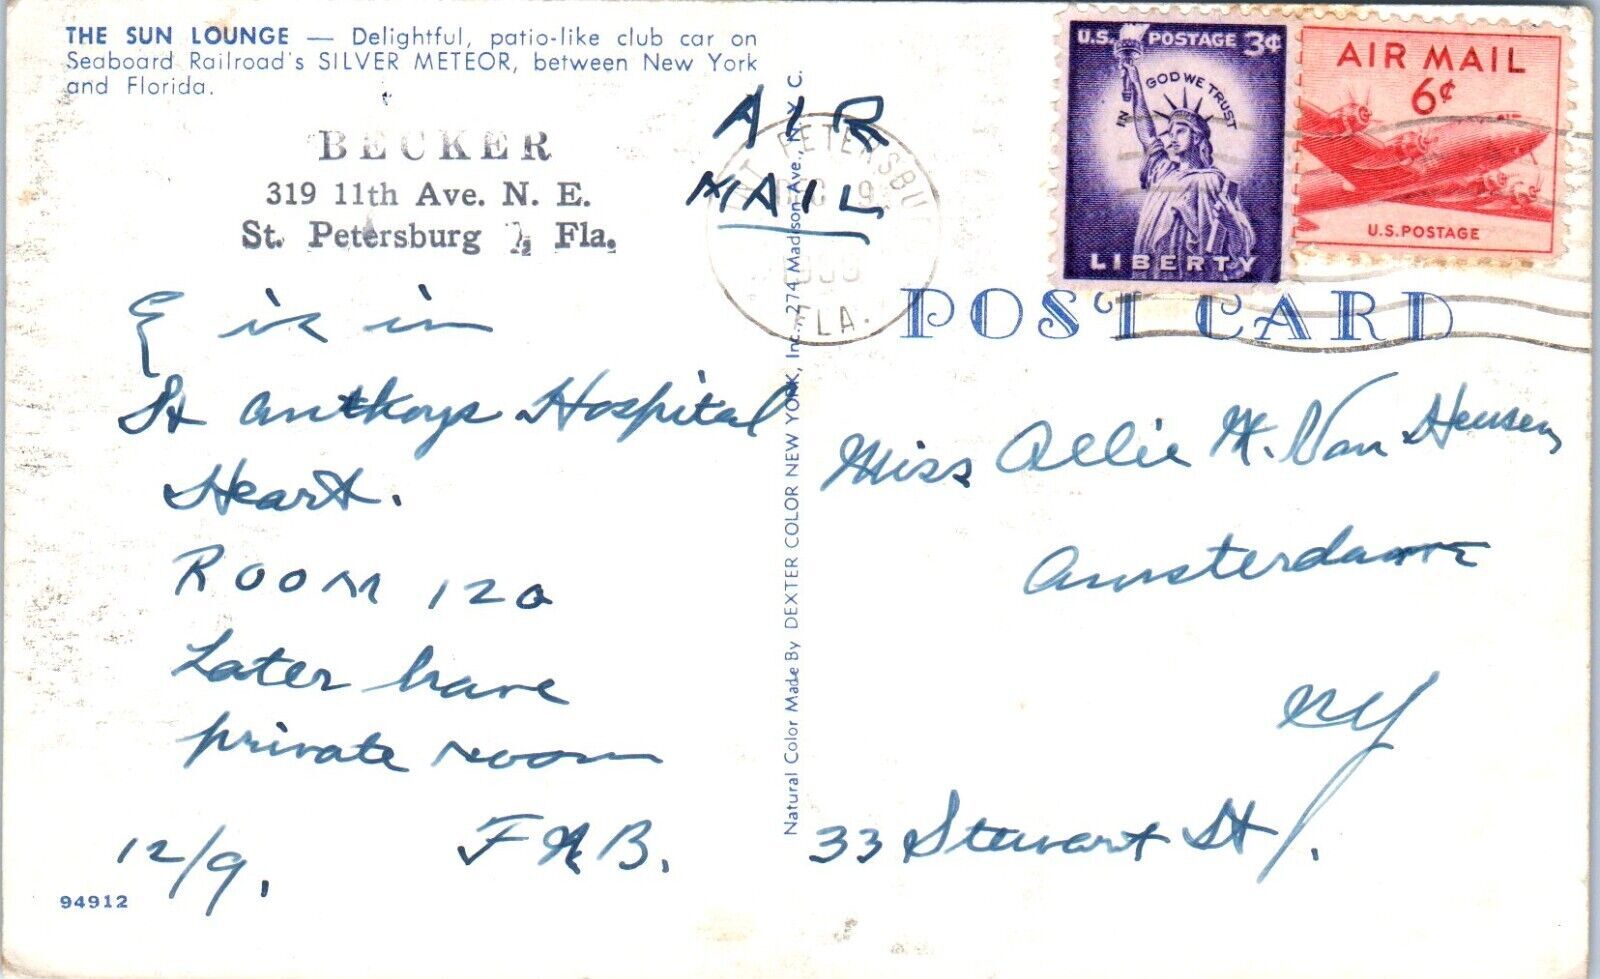 THE SUN LOUNGE — Delightful, patio-like club car on
Seaboard Railroad's SILVER METEOR, between New York
and Florida.
BECKER
319 11th Ave. N. E.
St. Petersburg Fla.
E is in
St Anthonys Hospital
Heart.
ROOM 120
Later have
private room
12/9.
94912
Natural Color Made By DEXTER COLOR NEW YORK, Inc., 274 Madison Ave., N. Y. C.
AIR
MAIL
PETERSBU
DEC 9
FLA.
U.S. POSTAGE 3¢
IN GOD WE TRUST
LIBERTY
AIR MAIL
6¢
U.S. POSTAGE
POST CARD
Miss Allie M. Van Heusen
Amsterdam
NY
33 Stewart St.